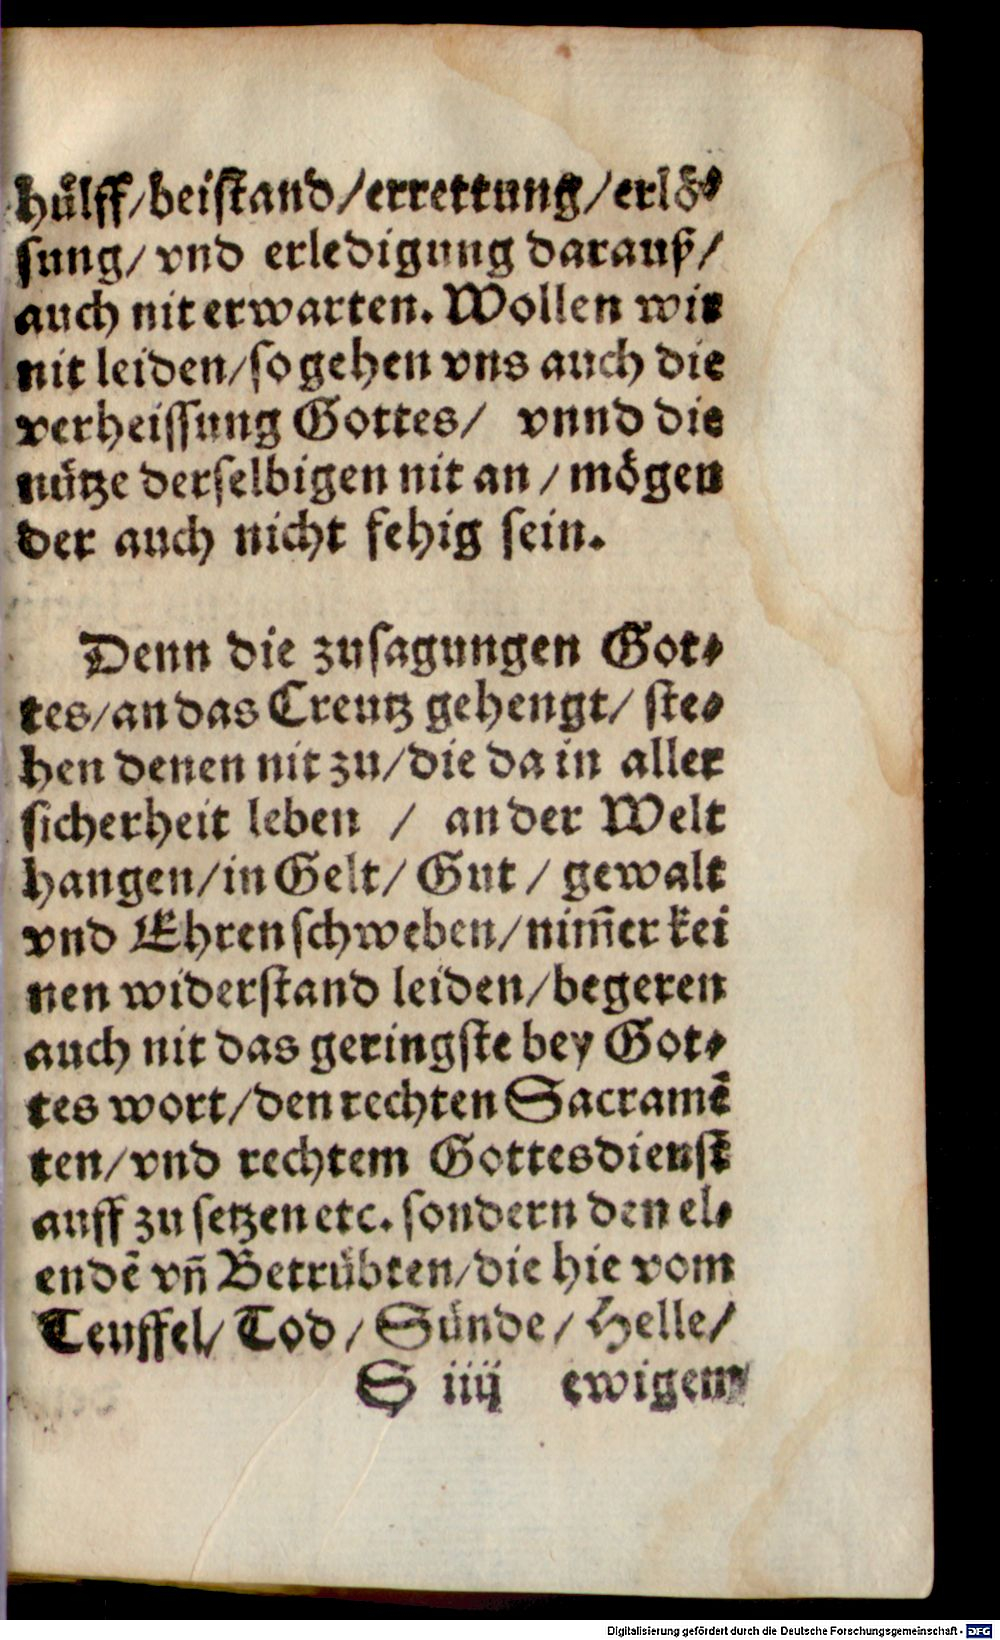 hülff/beistand/errettung/erlö⸗
sung/ vnd erledigung darauß/
auch nit erwarten. Wollen wir
nit leiden/so gehen vns auch die
verheissung Gottes/ vnnd die
nütze derselbigen nit an/ mögen
der auch nicht fehig sein.
Denn die zusagungen Got⸗
tes/an das Creutz gehengt/ ste⸗
hen denen nit zu/die da in aller
sicherheit leben / an der Welt
hangen/in Gelt/ Gut / gewalt
vnd Ehren schweben/nim̃er kei
nen widerstand leiden/begeren
auch nit das geringste bey Got⸗
tes wort/den rechten Sacramẽ
ten/vnd rechtem Gottesdienst
auff zu setzen etc. sondern den el⸗
endẽ vñ Betrübten/die hie vom
Teuffel/ Tod / Sünde / Helle/
S iiij ewigem
Digitalisierung gefördert durch die Deutsche Forschungsgemeinschaft - DFG